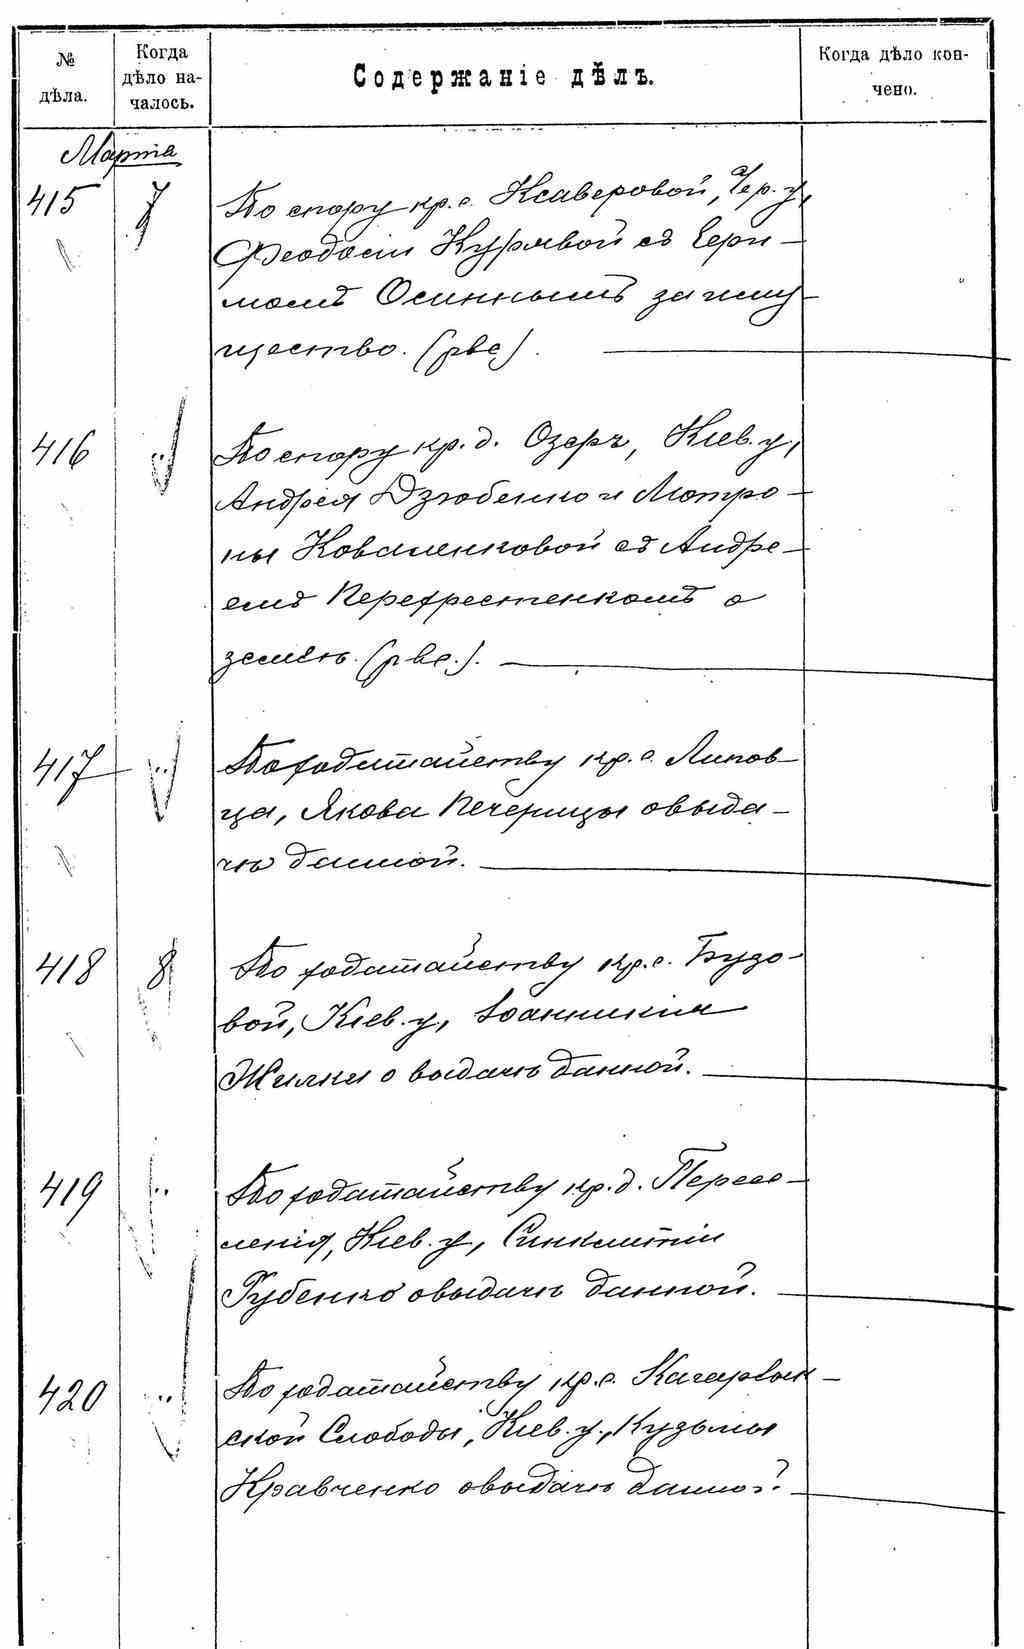 № дѣла.
Когда дѣло на-
чалось.
Содержаніе дѣлъ.
Когда дѣло кон-
чено.
Марта
415 7 По спору кр. с. Ксаверовой, Чер. у,
Феодосіи Курявой съ Ефи-
момъ Осиннымъ за иму-
щество. (рвс).
416 " По спору кр. д. Озеръ, Кіев. у,
Андрея Дзюбенко и Мотро-
ны Коваленковой съ Андре-
емъ Перехрестенкомъ о
землѣ. (рвс.).
417 " По ходатайству кр. с. Липов-
ца, Якова Печерицы о выда-
чѣ данной.
418 8 По ходатайству кр. с. Бузо-
вой, Кіев. у, Іоанникія
Жилки о выдачѣ данной.
419 " По ходатайству кр. д. Пересе-
ленія, Кіев. у, Синклитіи
Губенко о выдачѣ данной.
420 " По ходатайству кр. с.
ской Слободы, Кіев. у, Кузьмы
Кравченко о выдачѣ данной.